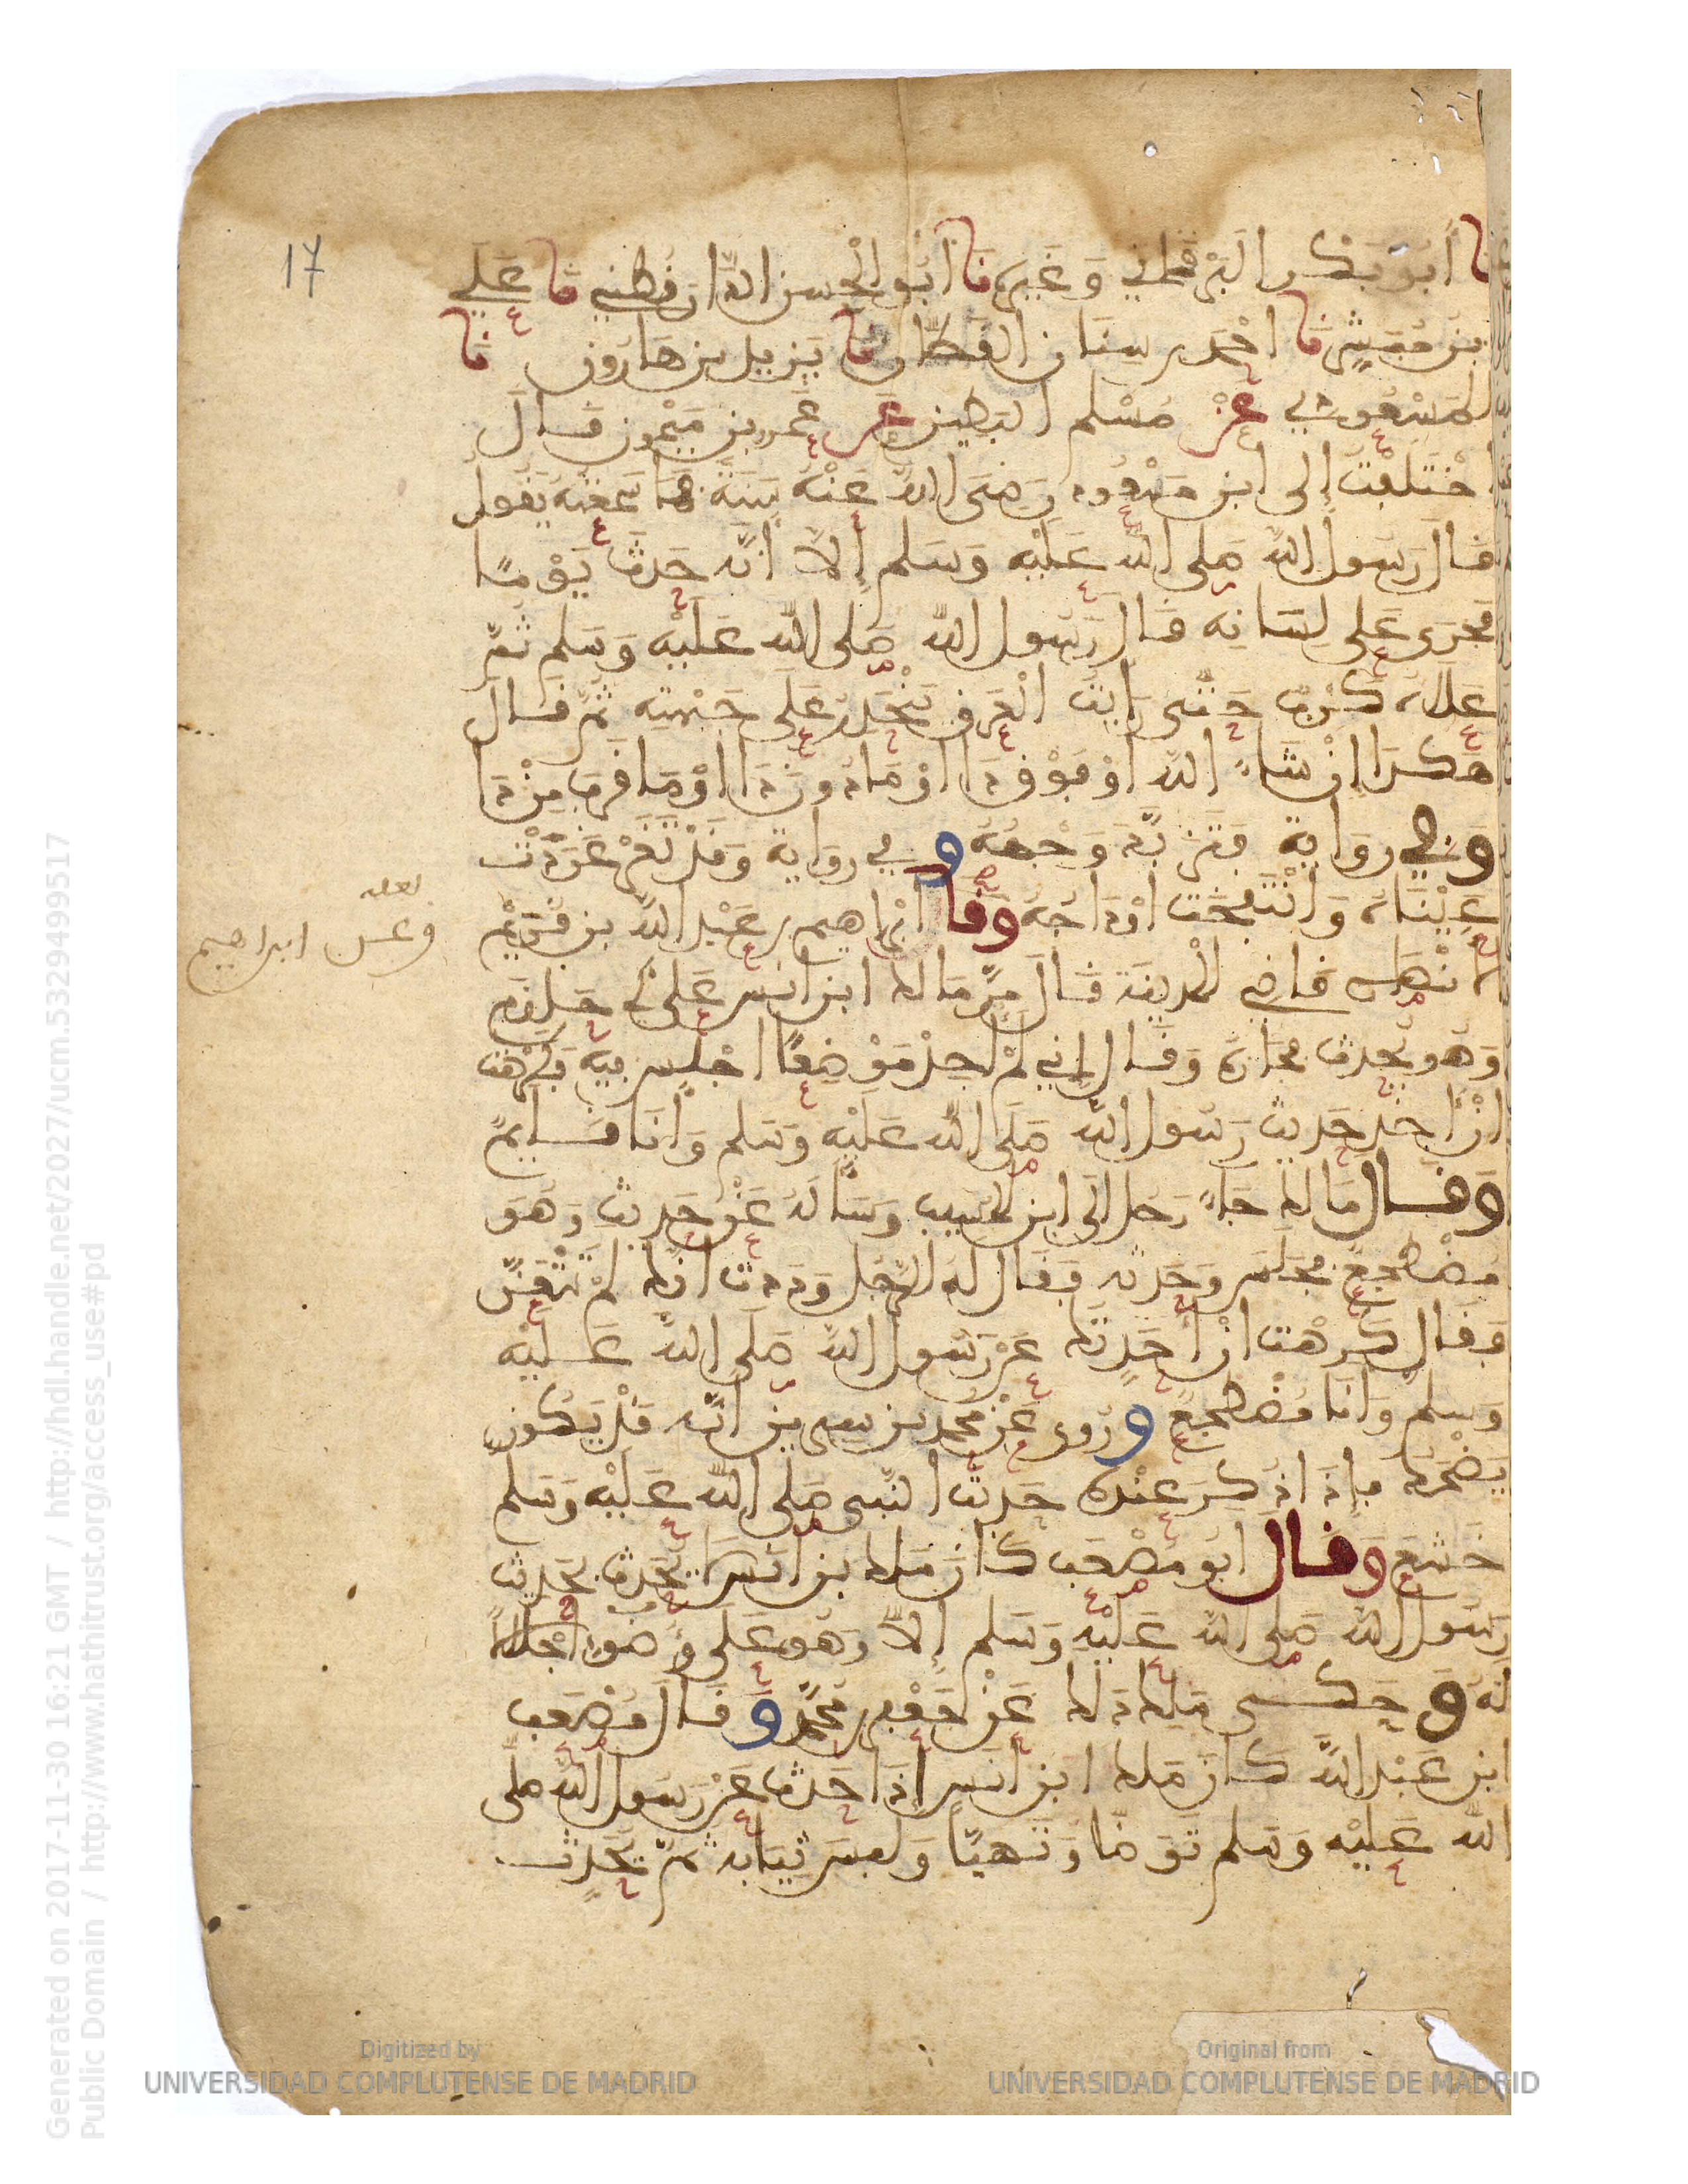 نا أبو بكر البرقاني وغيره نا أبو الحسن الدارقطني نا علي
بن مبشر نا احمد بن سنان القطان نا يزيد بن هارون نا
المسعودي عن مسلم البطين عن عمرو بن ميمون قال
اختلفت إلى ابن مسعود رضى الله عنه سنة فما سمعته يقول
قال رسول الله صلى الله عليه وسلم إلا أنه حدث يوما
فجرى على لسانه قال رسول الله صلى الله عليه وسلم ثم
علاه كرب حتى رأيت العرق يتحدر على جبهته ثم قال
هكذا إن شاء الله أو فوق ذا أو ما دون ذا أو ما قرب من ذا
وفي رواية فتربد وجهه وفي رواية وقد تغرغرت
عيناه وانتفخت أوداجه وقال ابراهيم بن عبد الله بن قريم
الأنصاري قاضي المدينة قال مر مالك ابن أنس على أبي حازم
وهو يحدث فجازه وقال إني لم أجد موضعا أجلس فيه فكرهت
أن آخذ حديث رسول الله صلى الله عليه وسلم وأنا قايم
وقال مالك جاء رجل إلى ابن المسيب وسأله عن حديث وهو
مضطجع فجلس وحدثه فقال له الرجل وددت أنك لم تتعن
فقال كرهت أن أحدثك عن رسول الله صلى الله عليه
وسلم وأنا مضطجع وروي عن محمد بن سيرين أنه قد يكون
يضحك فإذا ذكر عنده حديث النبي صلى الله عليه وسلم
خشع وقال أبو مصعب كان ملك بن أنس لا يحدث بحديث
رسول الله صلى الله عليه وسلم إلا وهو على وضوء إجلالا
له وحكى ملك ذلك عن جعفر بن محمد وقال مصعب
ابن عبد الله كان ملك ابن أنس إذا حدث عن رسول الله صلى
الله عليه وسلم توضأ وتهيأ ولبس ثيابه ثم يحدث
لعله
وعن ابراهيم
17
Generated on 2017-11-30 16:21 GMT / http://hdl.handle.net/2027/ucm.5329499517
Public Domain / http://www.hathitrust.org/access_use#pd
Digitized by
UNIVERSIDAD COMPLUTENSE DE MADRID
Original from
UNIVERSIDAD COMPLUTENSE DE MADRID